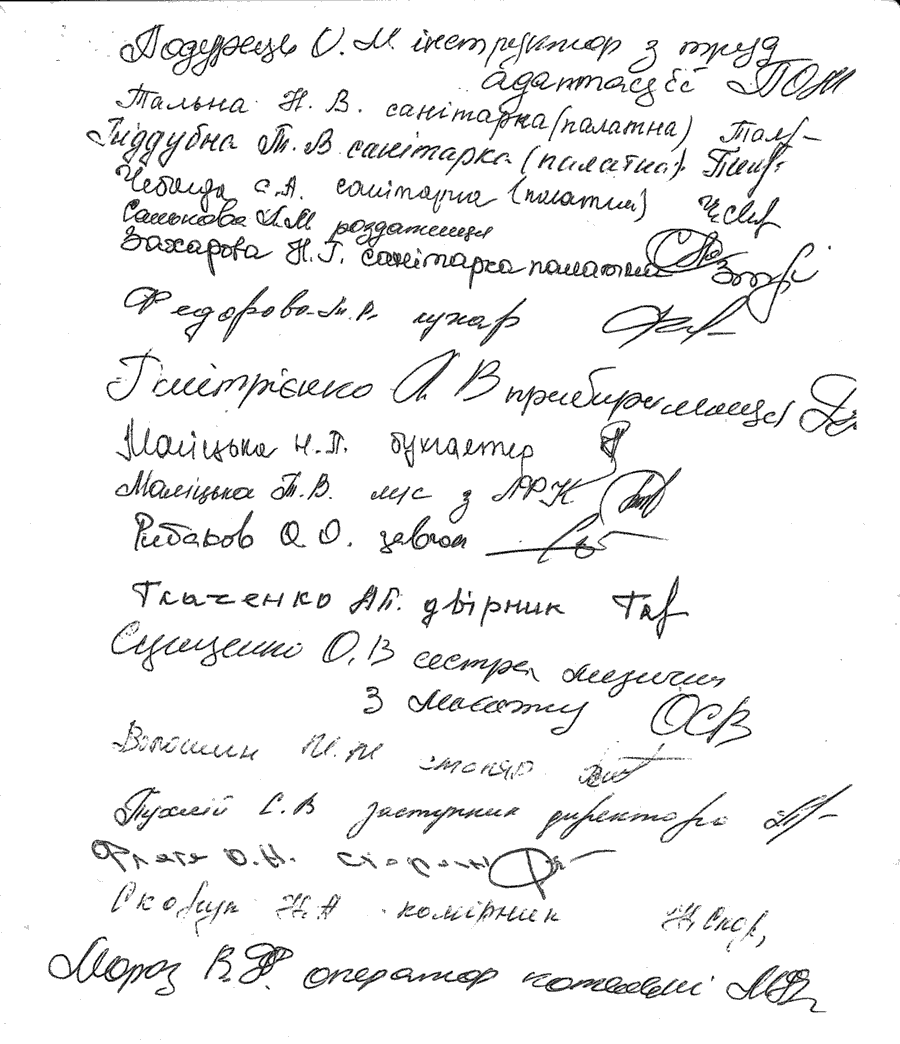 Подурець О. М інструктор з труд
адаптації ПОМ
Тальна Н. В. санітарка (палатна) Тал
Піддубна Т. В санітарка (палатна)
С.А. санітарка (палатна)
Санькова Л.М роздатниця
Захарова Н. Г. санітарка палатна
Федорова Т. Р. кухар
Дмітрієнко Л. В прибиральниця
Маліцька Н. П. бухгалтер
Маліцька Т. В. м/с з ЛФК
Рибаков О. О. завгосп
Ткаченко А П. двірник Ткач
О. В сестра медична
з масажу ОСВ
Волошин М. М столяр
Пухлій С. В заступник директора
О. Н. сторож
Н. А комірник Н. Скор
Мороз В. Ф. оператор котельні МВФ